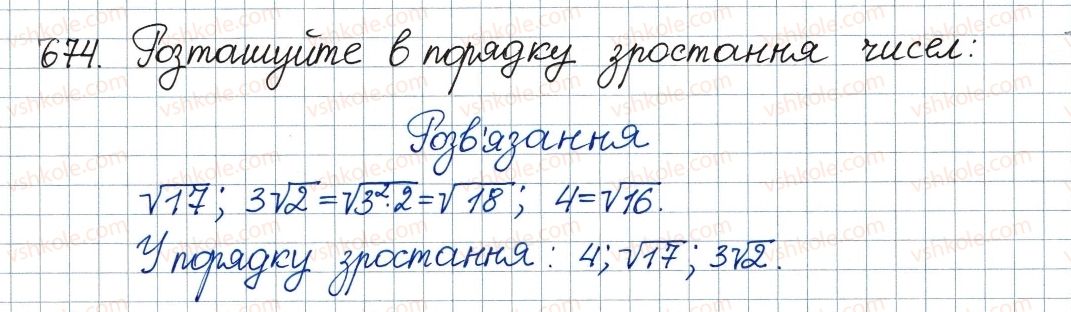 674. Розташуйте в порядку зростання чисел:
Розв'язання
√17; 3√2 = √3²·2 = √18; 4 = √16.
У порядку зростання: 4; √17; 3√2.